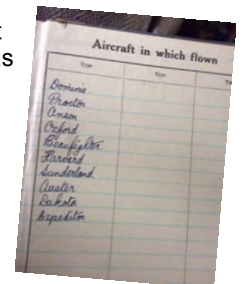 Aircraft in which flown
Type Type Type
Dominie
Proctor
Anson
Oxford
Beaufighter
Harvard
Sunderland
Auster
Dakota
Expeditor